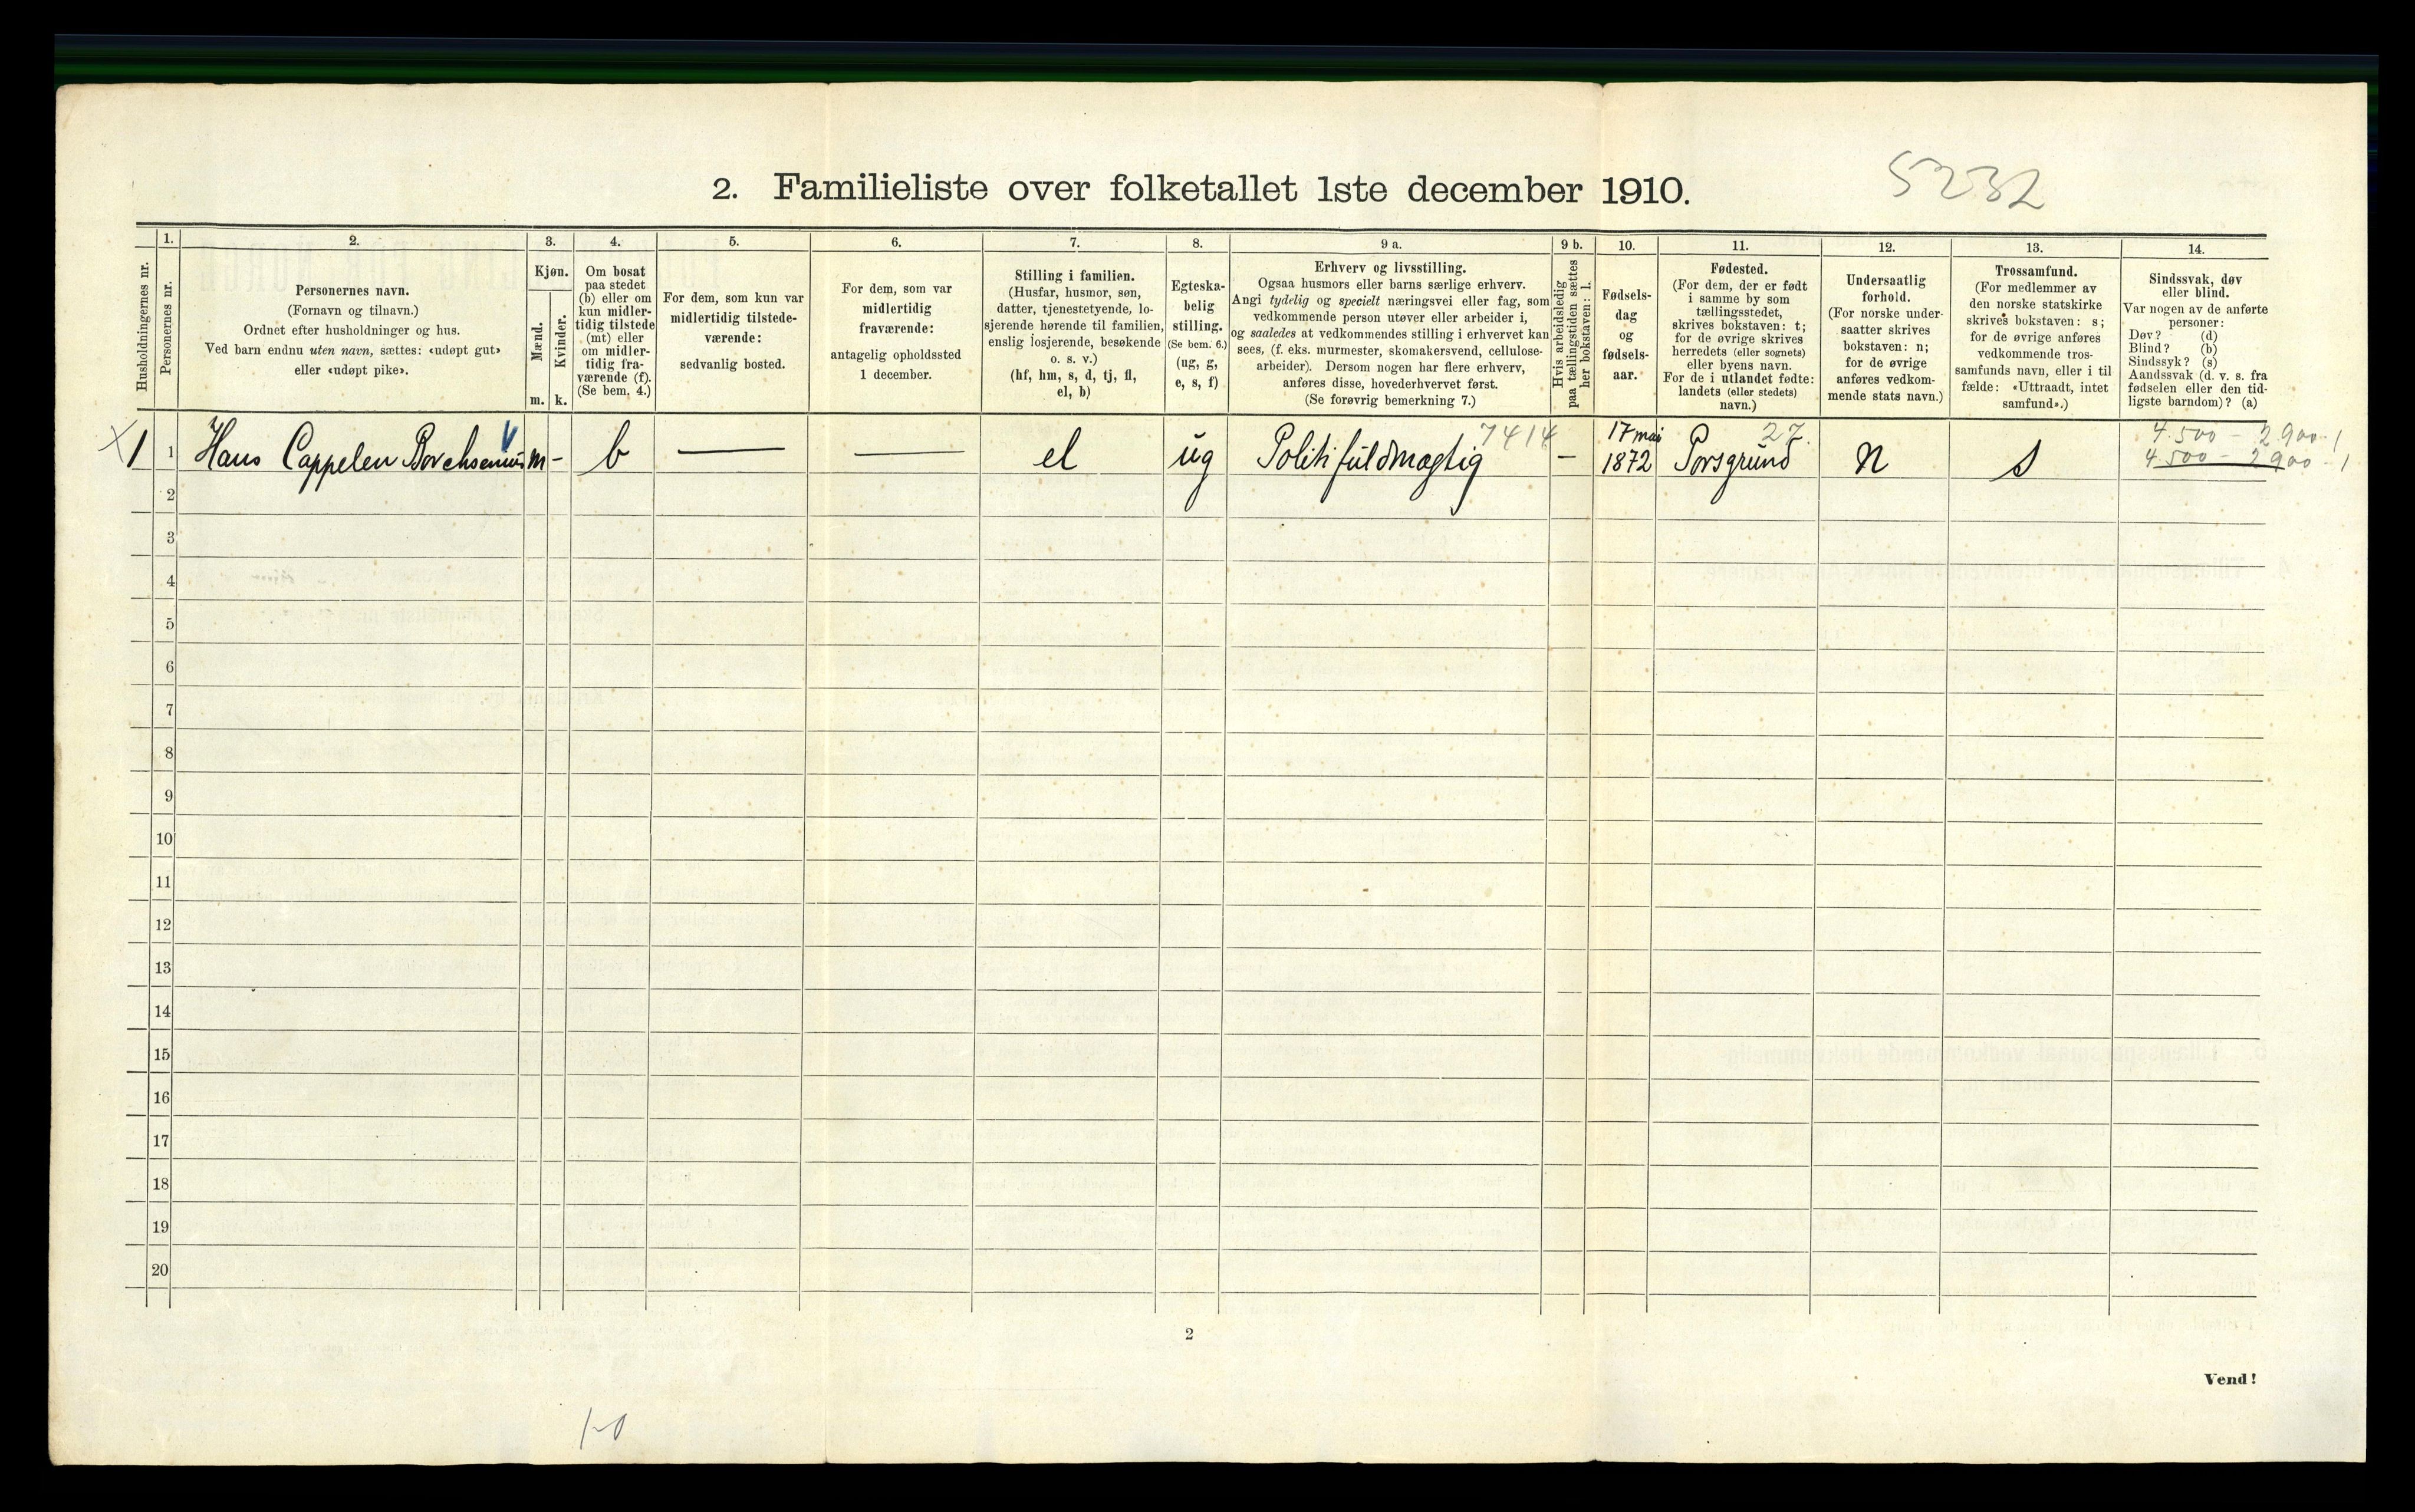 5232
2. Familieliste over folketallet 1ste december 1910.
Husholdningernes nr.
1.
Personernes nr.
2.
Personernes navn.
(Fornavn og tilnavn.)
Ordnet efter husholdninger og hus.
Ved barn endnu uten navn, sættes: «udøpt gut»
eller «udøpt pike».
3.
Kjøn.
Mænd.
Kvinder.
m. k.
4.
Om bosat
paa stedet
(b) eller om
kun midler-
tidig tilstede
(mt) eller
om midler-
tidig fra-
værende (f).
(Se bem. 4.)
5.
For dem, som kun var
midlertidig tilstede-
værende:
sedvanlig bosted.
6.
For dem, som var
midlertidig
fraværende:
antagelig opholdssted
1 december.
7.
Stilling i familien.
(Husfar, husmor, søn,
datter, tjenestetyende, lo-
sjerende hørende til familien,
enslig losjerende, besøkende
o. s. v.)
(hf, hm, s, d, tj, fl,
el, b)
8.
Egteska-
belig
stilling.
(Se bem. 6.)
(ug, g,
e, s, f)
9 a.
Erhverv og livsstilling.
Ogsaa husmors eller barns særlige erhverv.
Angi tydelig og specielt næringsvei eller fag, som
vedkommende person utøver eller arbeider i,
og saaledes at vedkommendes stilling i erhvervet kan
sees, (f. eks. murmester, skomakersvend, cellulose-
arbeider). Dersom nogen har flere erhverv,
anføres disse, hovederhvervet først.
(Se forøvrig bemerkning 7.)
9 b.
Hvis arbeidsledig
paa tællingstiden sættes
her bokstaven: l.
10.
Fødsels-
dag
og
fødsels-
aar.
11.
Fødested.
(For dem, der er født
i samme by som
tællingsstedet,
skrives bokstaven: t;
for de øvrige skrives
herredets (eller sognets)
eller byens navn.
For de i utlandet fødte:
landets (eller stedets)
navn.)
12.
Undersaatlig
forhold.
(For norske under-
saatter skrives
bokstaven: n;
for de øvrige
anføres vedkom-
mende stats navn.)
13.
Trossamfund.
(For medlemmer av
den norske statskirke
skrives bokstaven: s;
for de øvrige anføres
vedkommende tros-
samfunds navn, eller i til
fælde: «Uttraadt, intet
samfund».)
14.
Sindssvak, døv
eller blind.
Var nogen av de anførte
personer:
Døv? (d)
Blind? (b)
Sindssyk? (s)
Aandssvak (d. v. s. fra
fødselen eller den tid-
ligste barndom)? (a)
7414 17 mai 27. 4.500 - 2900.1
X 1 1 Hans Cappelen Borchsenius m - b — — el ug Politifuldmægtig - 1872 Porsgrund n s 4.500 - 2900.1
2
3
4
5
6
7
8
9
10
11
12
13
14
15
16
17
18
19
20
2
Vend!
1-0